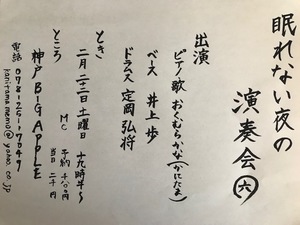 眠れない夜の
演奏会㊅
出演
ピアノ歌 おくむらかな(かにたま)
ベース 井上歩
ドラムス 定岡弘将
とき
二月二三日土曜日 十九時半〜
MC 予約 千八〇〇円
当日 二千円
ところ
神戸BIGAPPLE
電話 078-251-7049
kanitamamemo@yahoo.co.jp